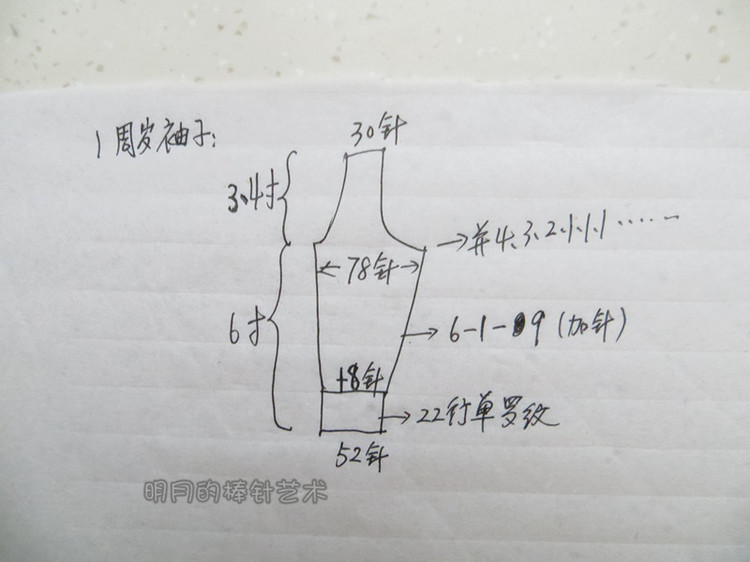 1周岁袖子:
30针
3.4寸
→并4.3.2.1.1.1······
←78针→
6寸
→6-1-9(加针)
+8针
→22行单罗纹
52针
明月的棒针艺术